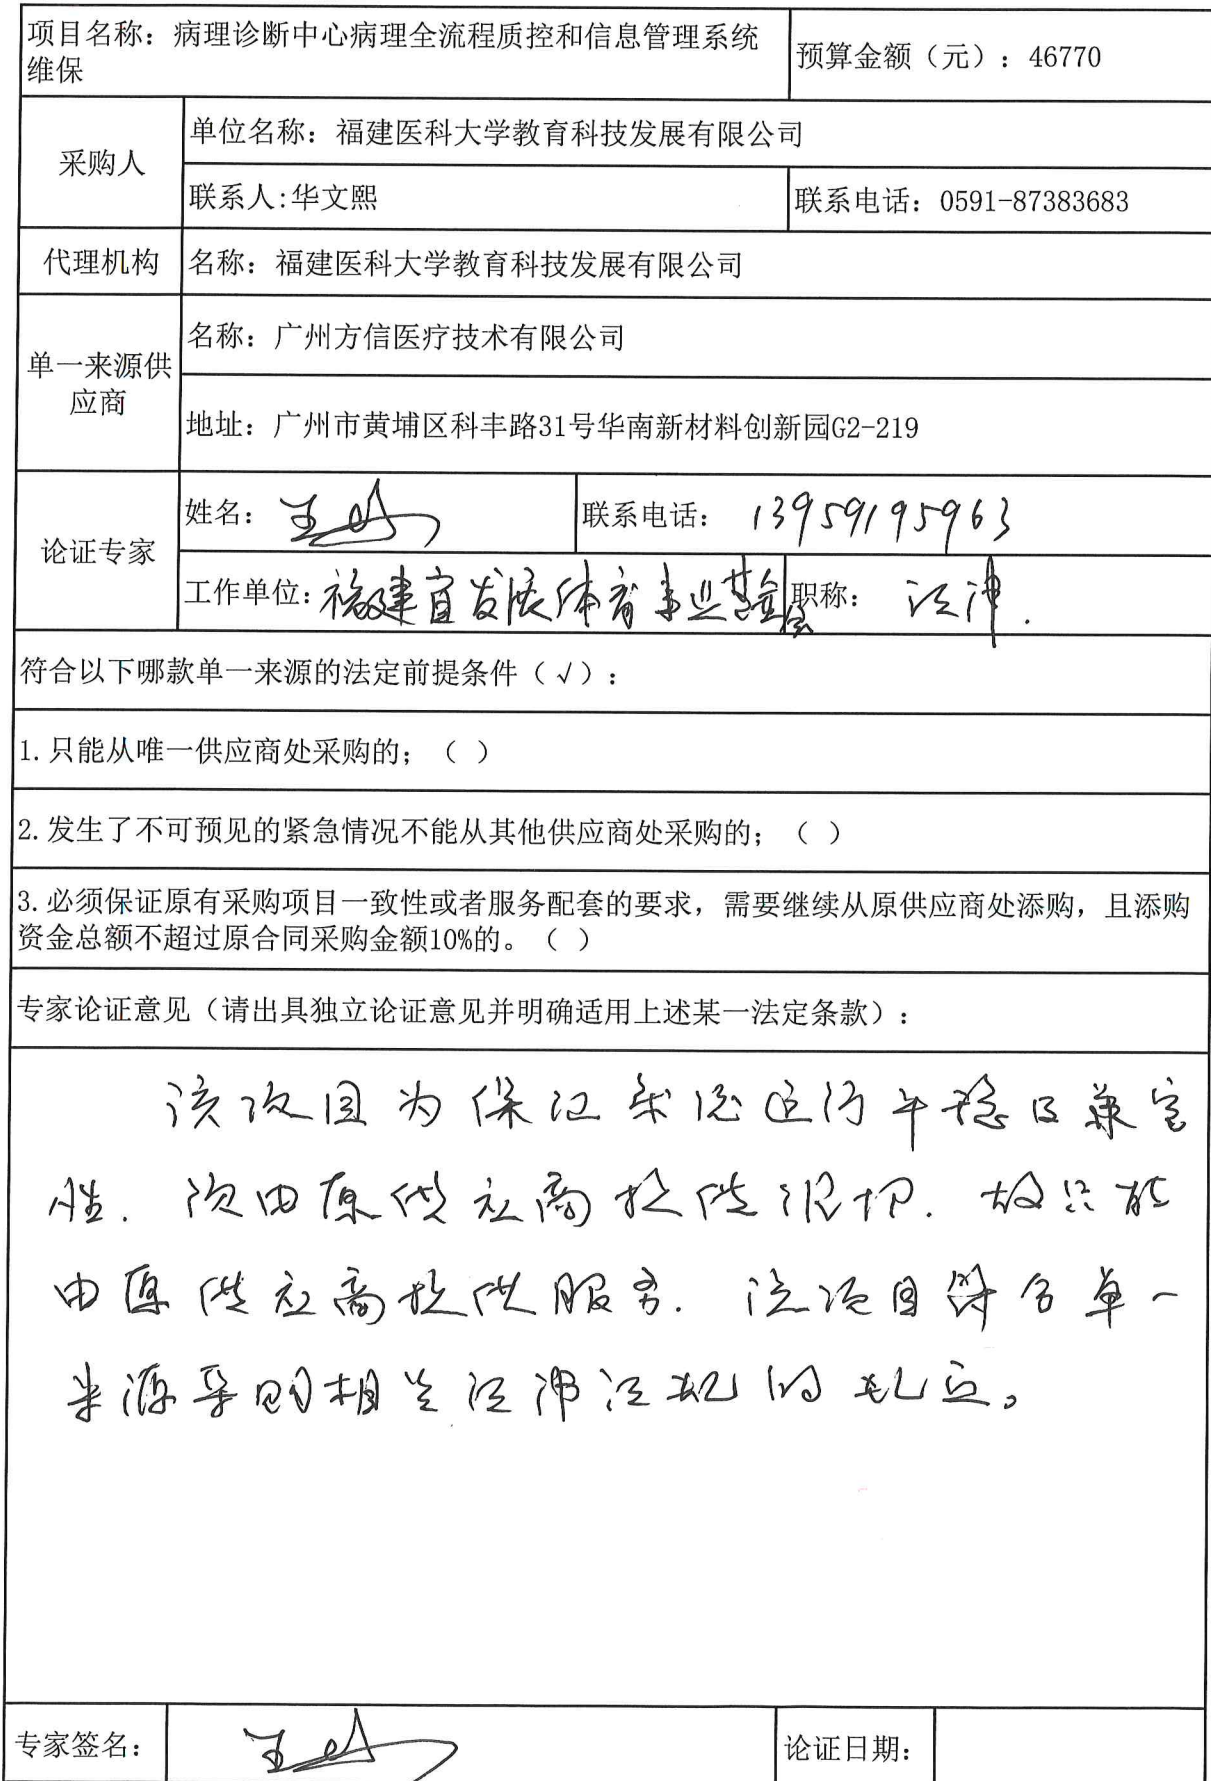 项目名称：病理诊断中心病理全流程质控和信息管理系统
维保
预算金额（元）：46770
采购人
单位名称：福建医科大学教育科技发展有限公司
联系人:华文熙
联系电话：0591-87383683
代理机构
名称：福建医科大学教育科技发展有限公司
单一来源供
应商
名称：广州方信医疗技术有限公司
地址：广州市黄埔区科丰路31号华南新材料创新园G2-219
论证专家
姓名：王
联系电话：13959195963
工作单位：福建省发展体育事业基金会
职称：法律.
符合以下哪款单一来源的法定前提条件（√）：
1.只能从唯一供应商处采购的；（ ）
2.发生了不可预见的紧急情况不能从其他供应商处采购的；（ ）
3.必须保证原有采购项目一致性或者服务配套的要求，需要继续从原供应商处添购，且添购
资金总额不超过原合同采购金额10%的。（ ）
专家论证意见（请出具独立论证意见并明确适用上述某一法定条款）：
该项目为保证系统运行平稳及兼容
性. 须由原供应商提供维护. 故只能
由原供应商提供服务. 该项目符合单一
来源采购相关法律法规的规定。
专家签名：
王
论证日期：